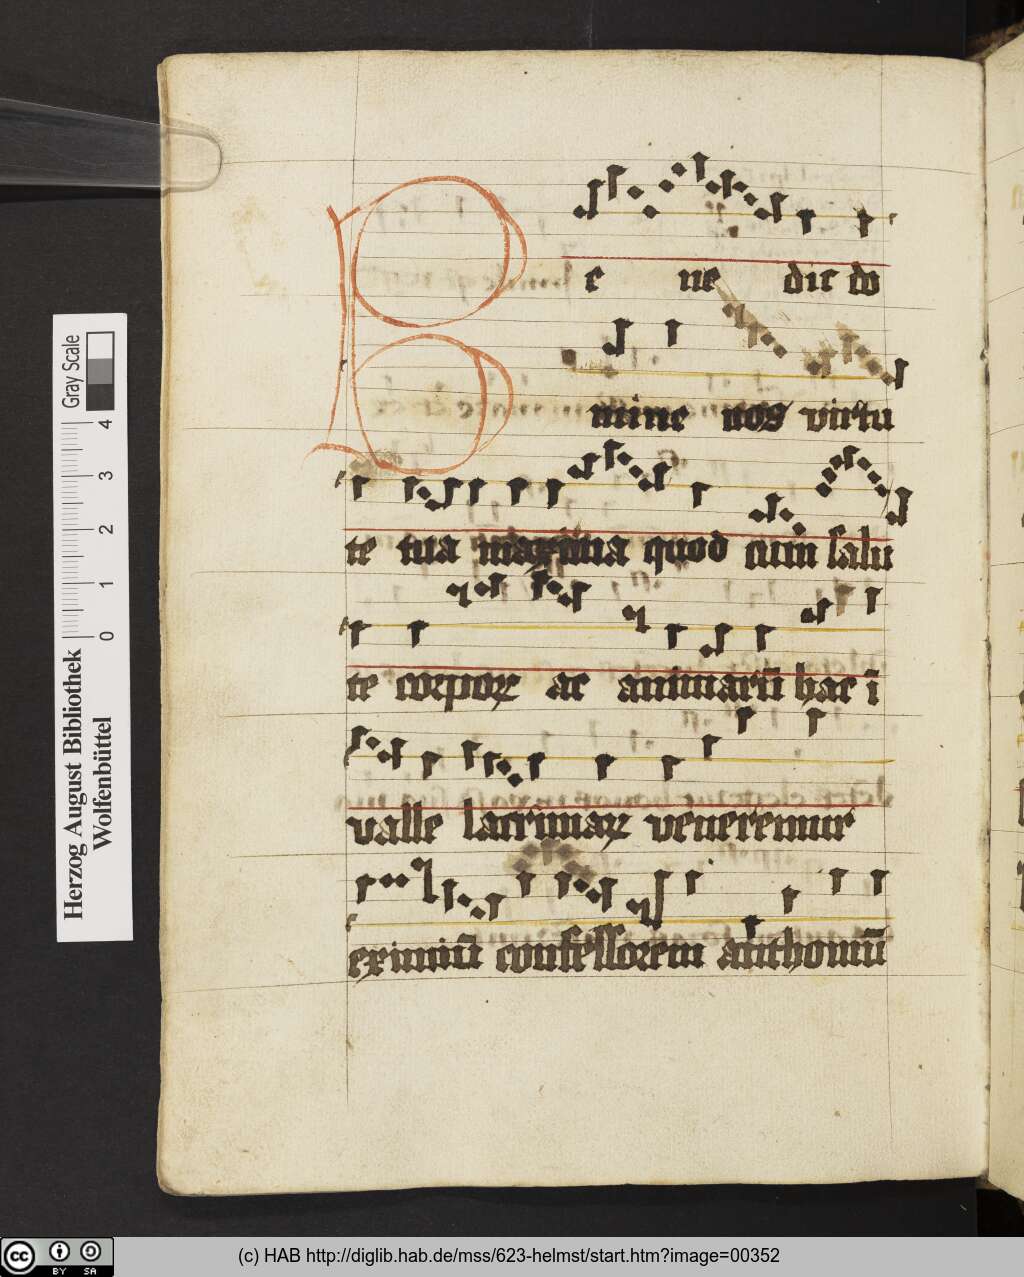 B e ne dic do
mine nos virtu
te tua maxima quod cum salu
te corpoꝝ ac animarū hac ī
valle lacrimaꝝ veneremur
eximiū confessorem anthoniū
Herzog August Bibliothek
Wolfenbüttel
Gray Scale
0 1 2 3 4
cc BY SA
(c) HAB http://diglib.hab.de/mss/623-helmst/start.htm?image=00352